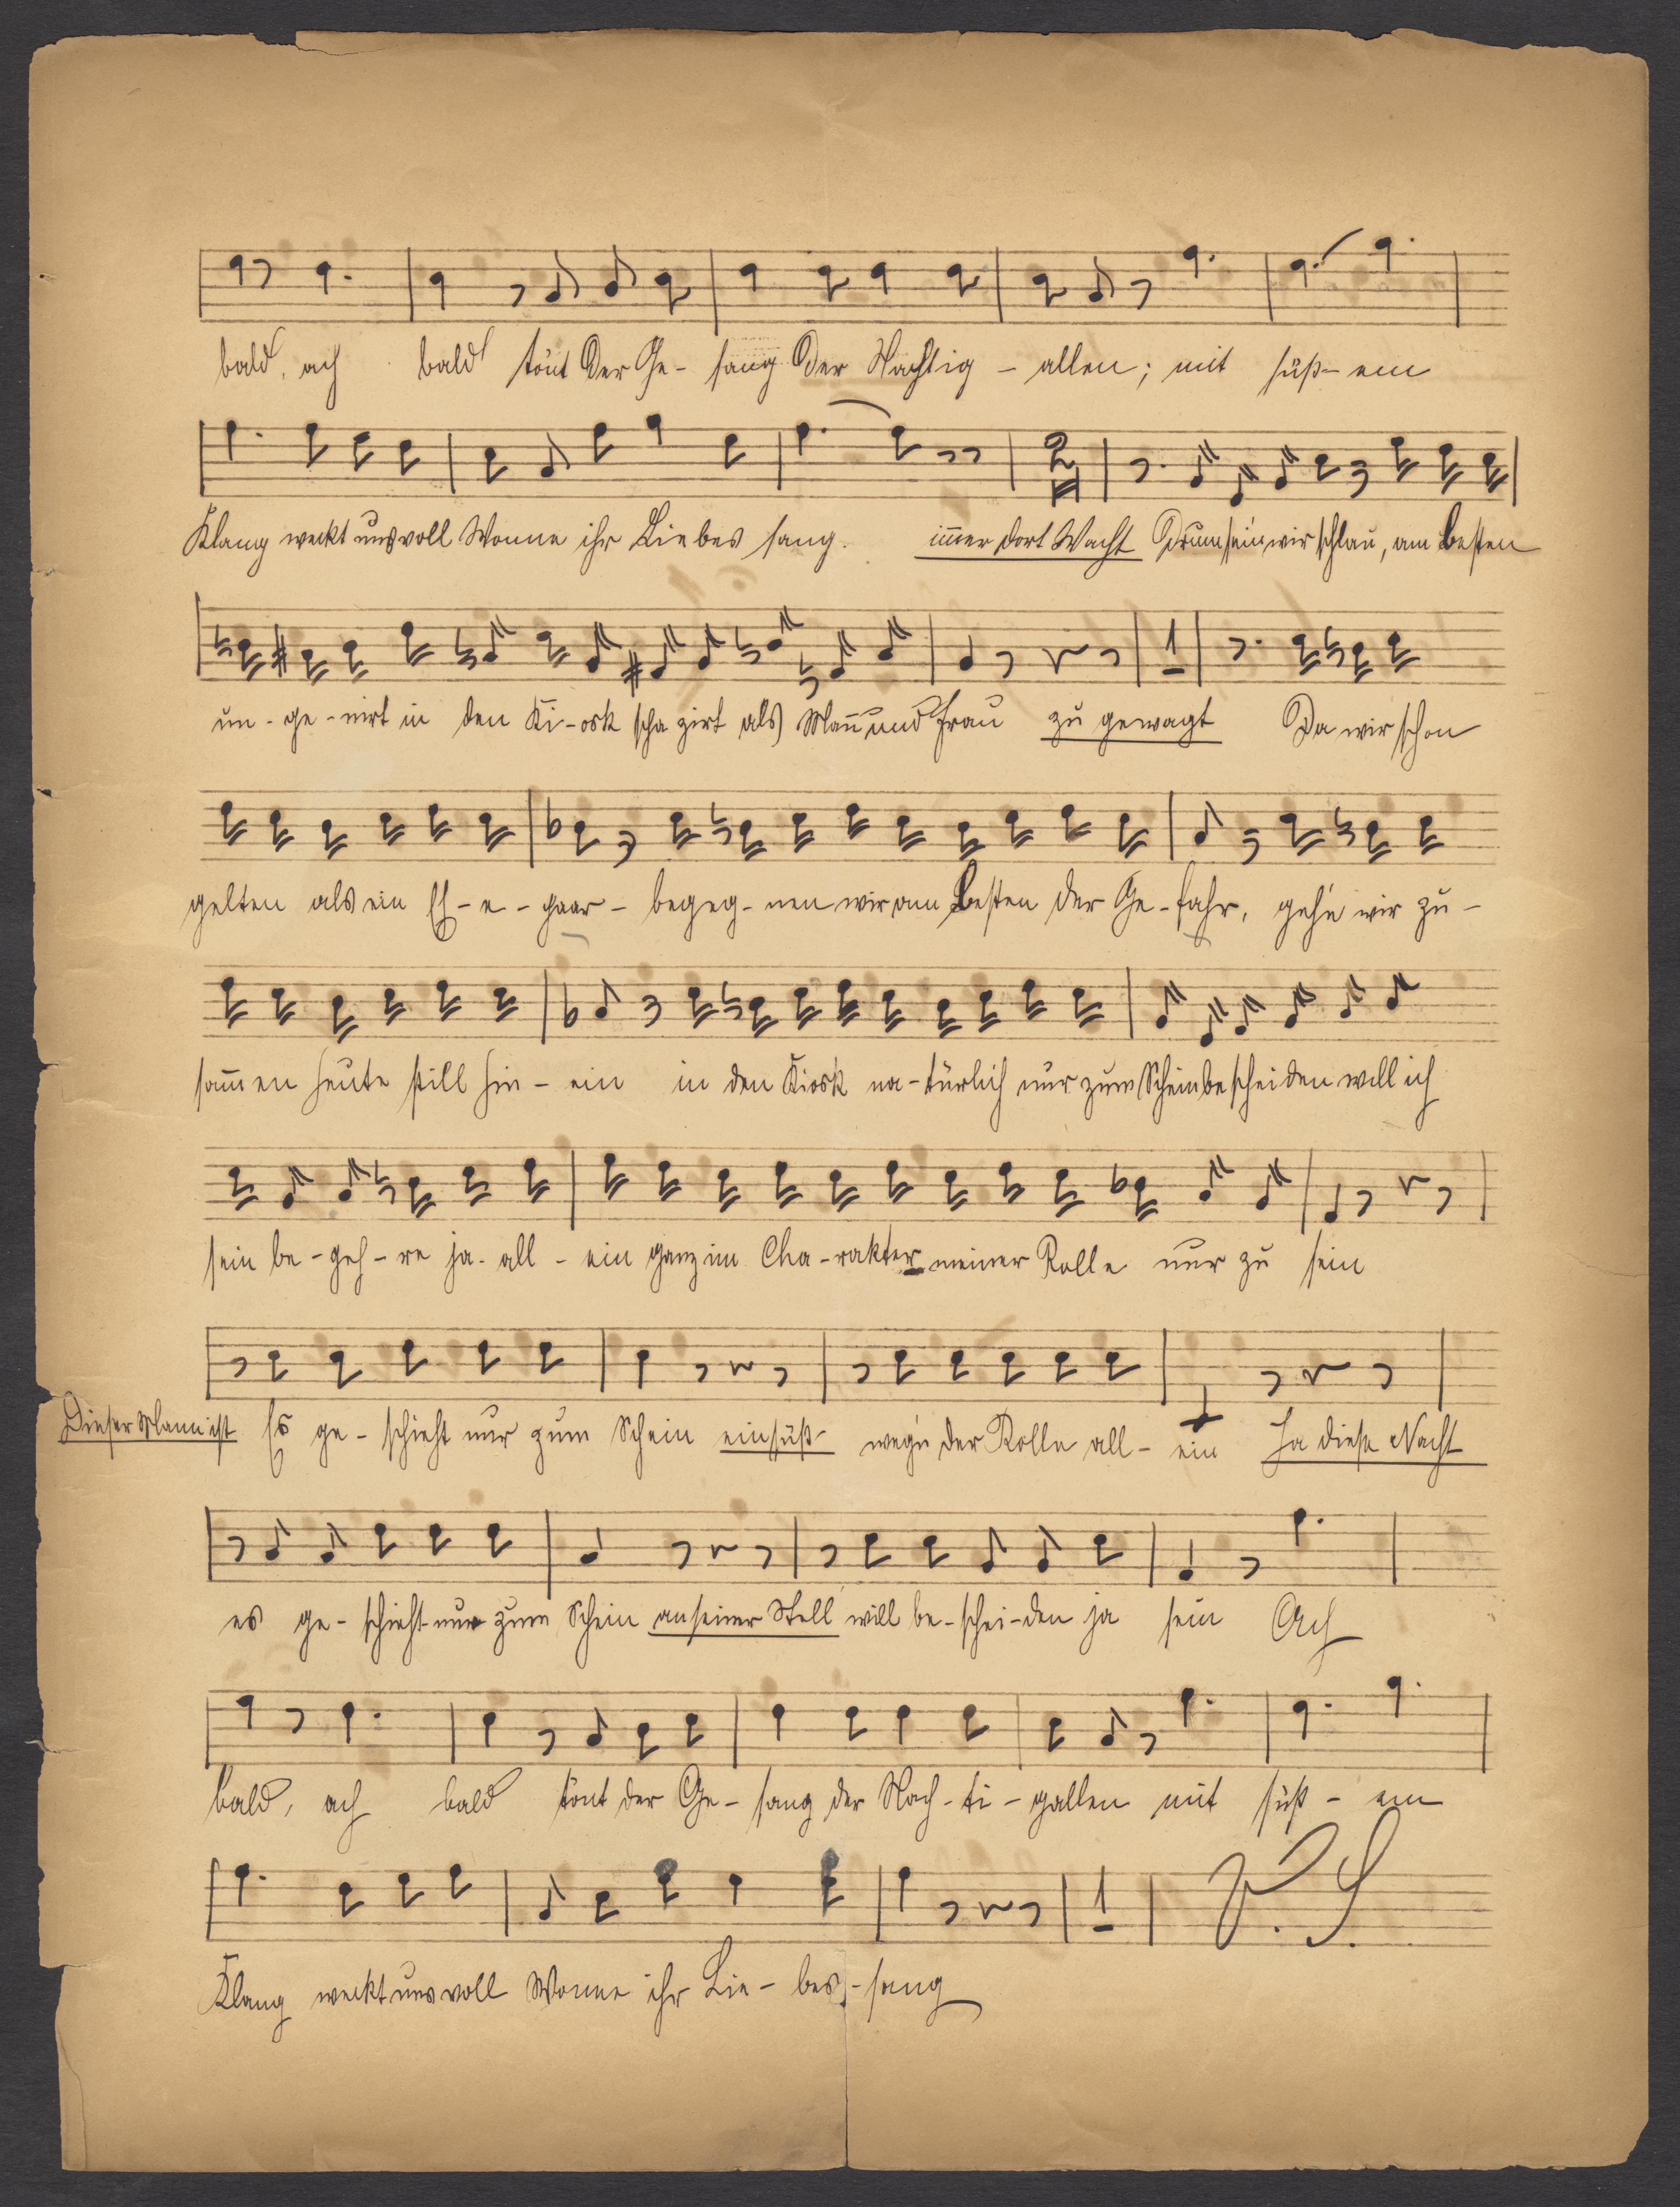 bald, ach bald tönt der Ge- sang der Nachtig - allen; mit süß- em
Klang weckt uns voll Wonne ihr Liebes sang. im̅er dort Wacht Drum sein wir schlau, am besten
un - ge - nirt in den Ki - osk spa zirt als Man̅ und Frau zu gewagt Da wir schon
gelten als ein Eh - e - paar - begeg - nen wir am besten der Ge - fahr, geh'n wir zu -
sam̅en heute still hin - ein in den Kiosk na - türlich nur zum Schein bescheiden will ich
sein be - geh - re ja - all - ein ganz im Cha - rakter meiner Rolle nur zu sein
Dieser Mann ist Es ge - schieht nur zum Schein ein süß- weg'n der Rolle all - ein Ja diese Nacht
es ge - schieht nur zum Schein an seiner Stell will be - schei - den ja sein Ach
bald, ach bald tönt der Ge - sang der Nach - ti - gallen mit süß - em
Klang weckt uns voll Wonne ihr Lie - bes - sang